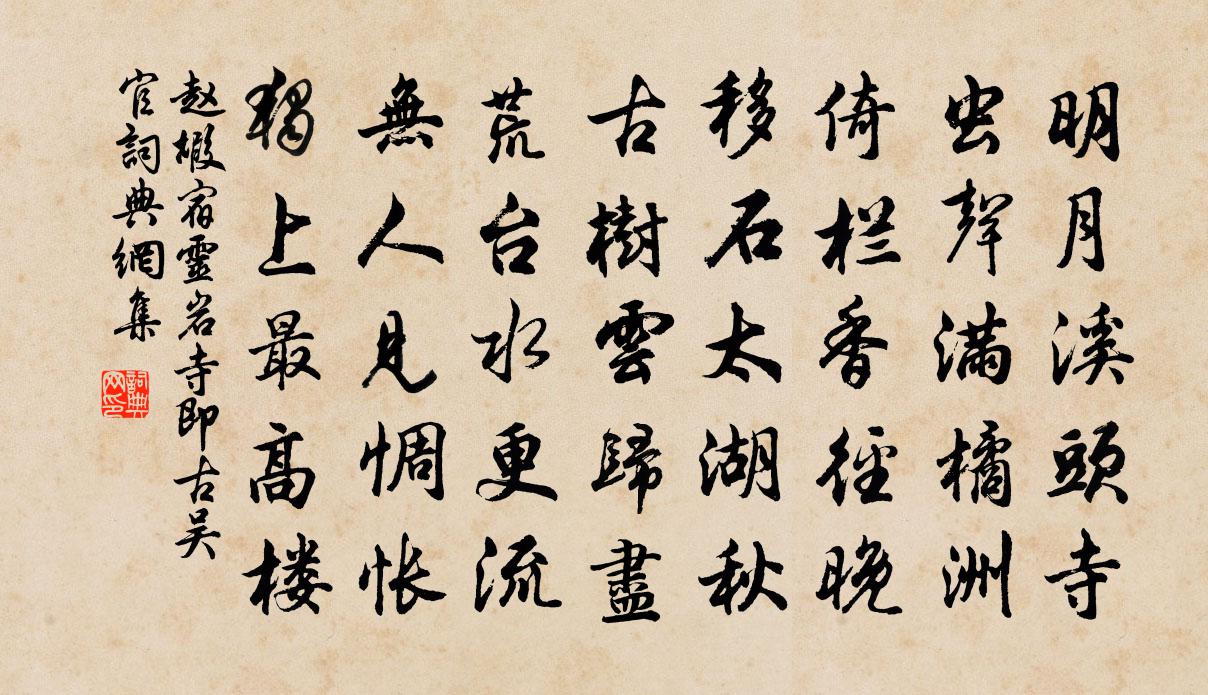 明月溪頭寺
虫聲满橘洲
倚栏香徑晚
移石太湖秋
古樹雲歸盡
荒台水更流
無人見惆怅
獨上最高楼
赵嘏宿靈岩寺即古吴
官詞典網集
詞典网印